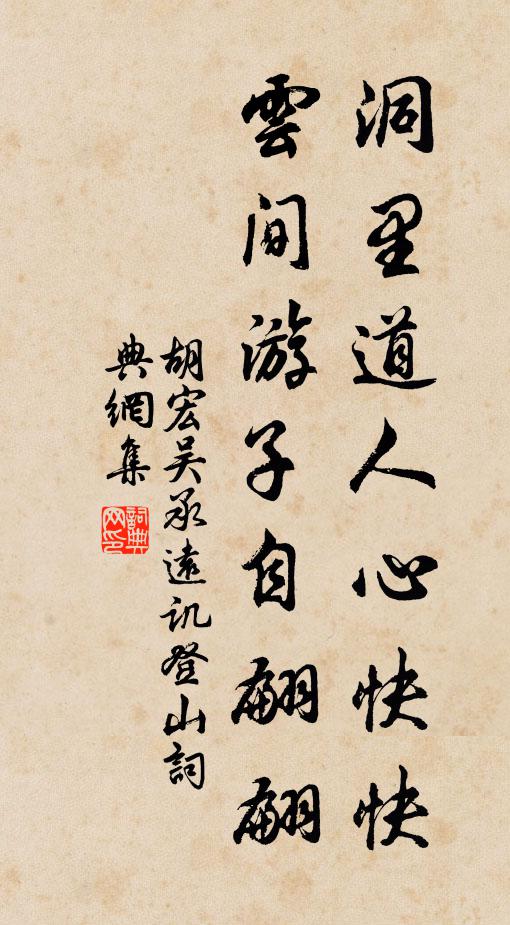 洞里道人心快快
雲间游子自翩翩
胡宏吴承遠讥登山詞
典網集
詞典網印